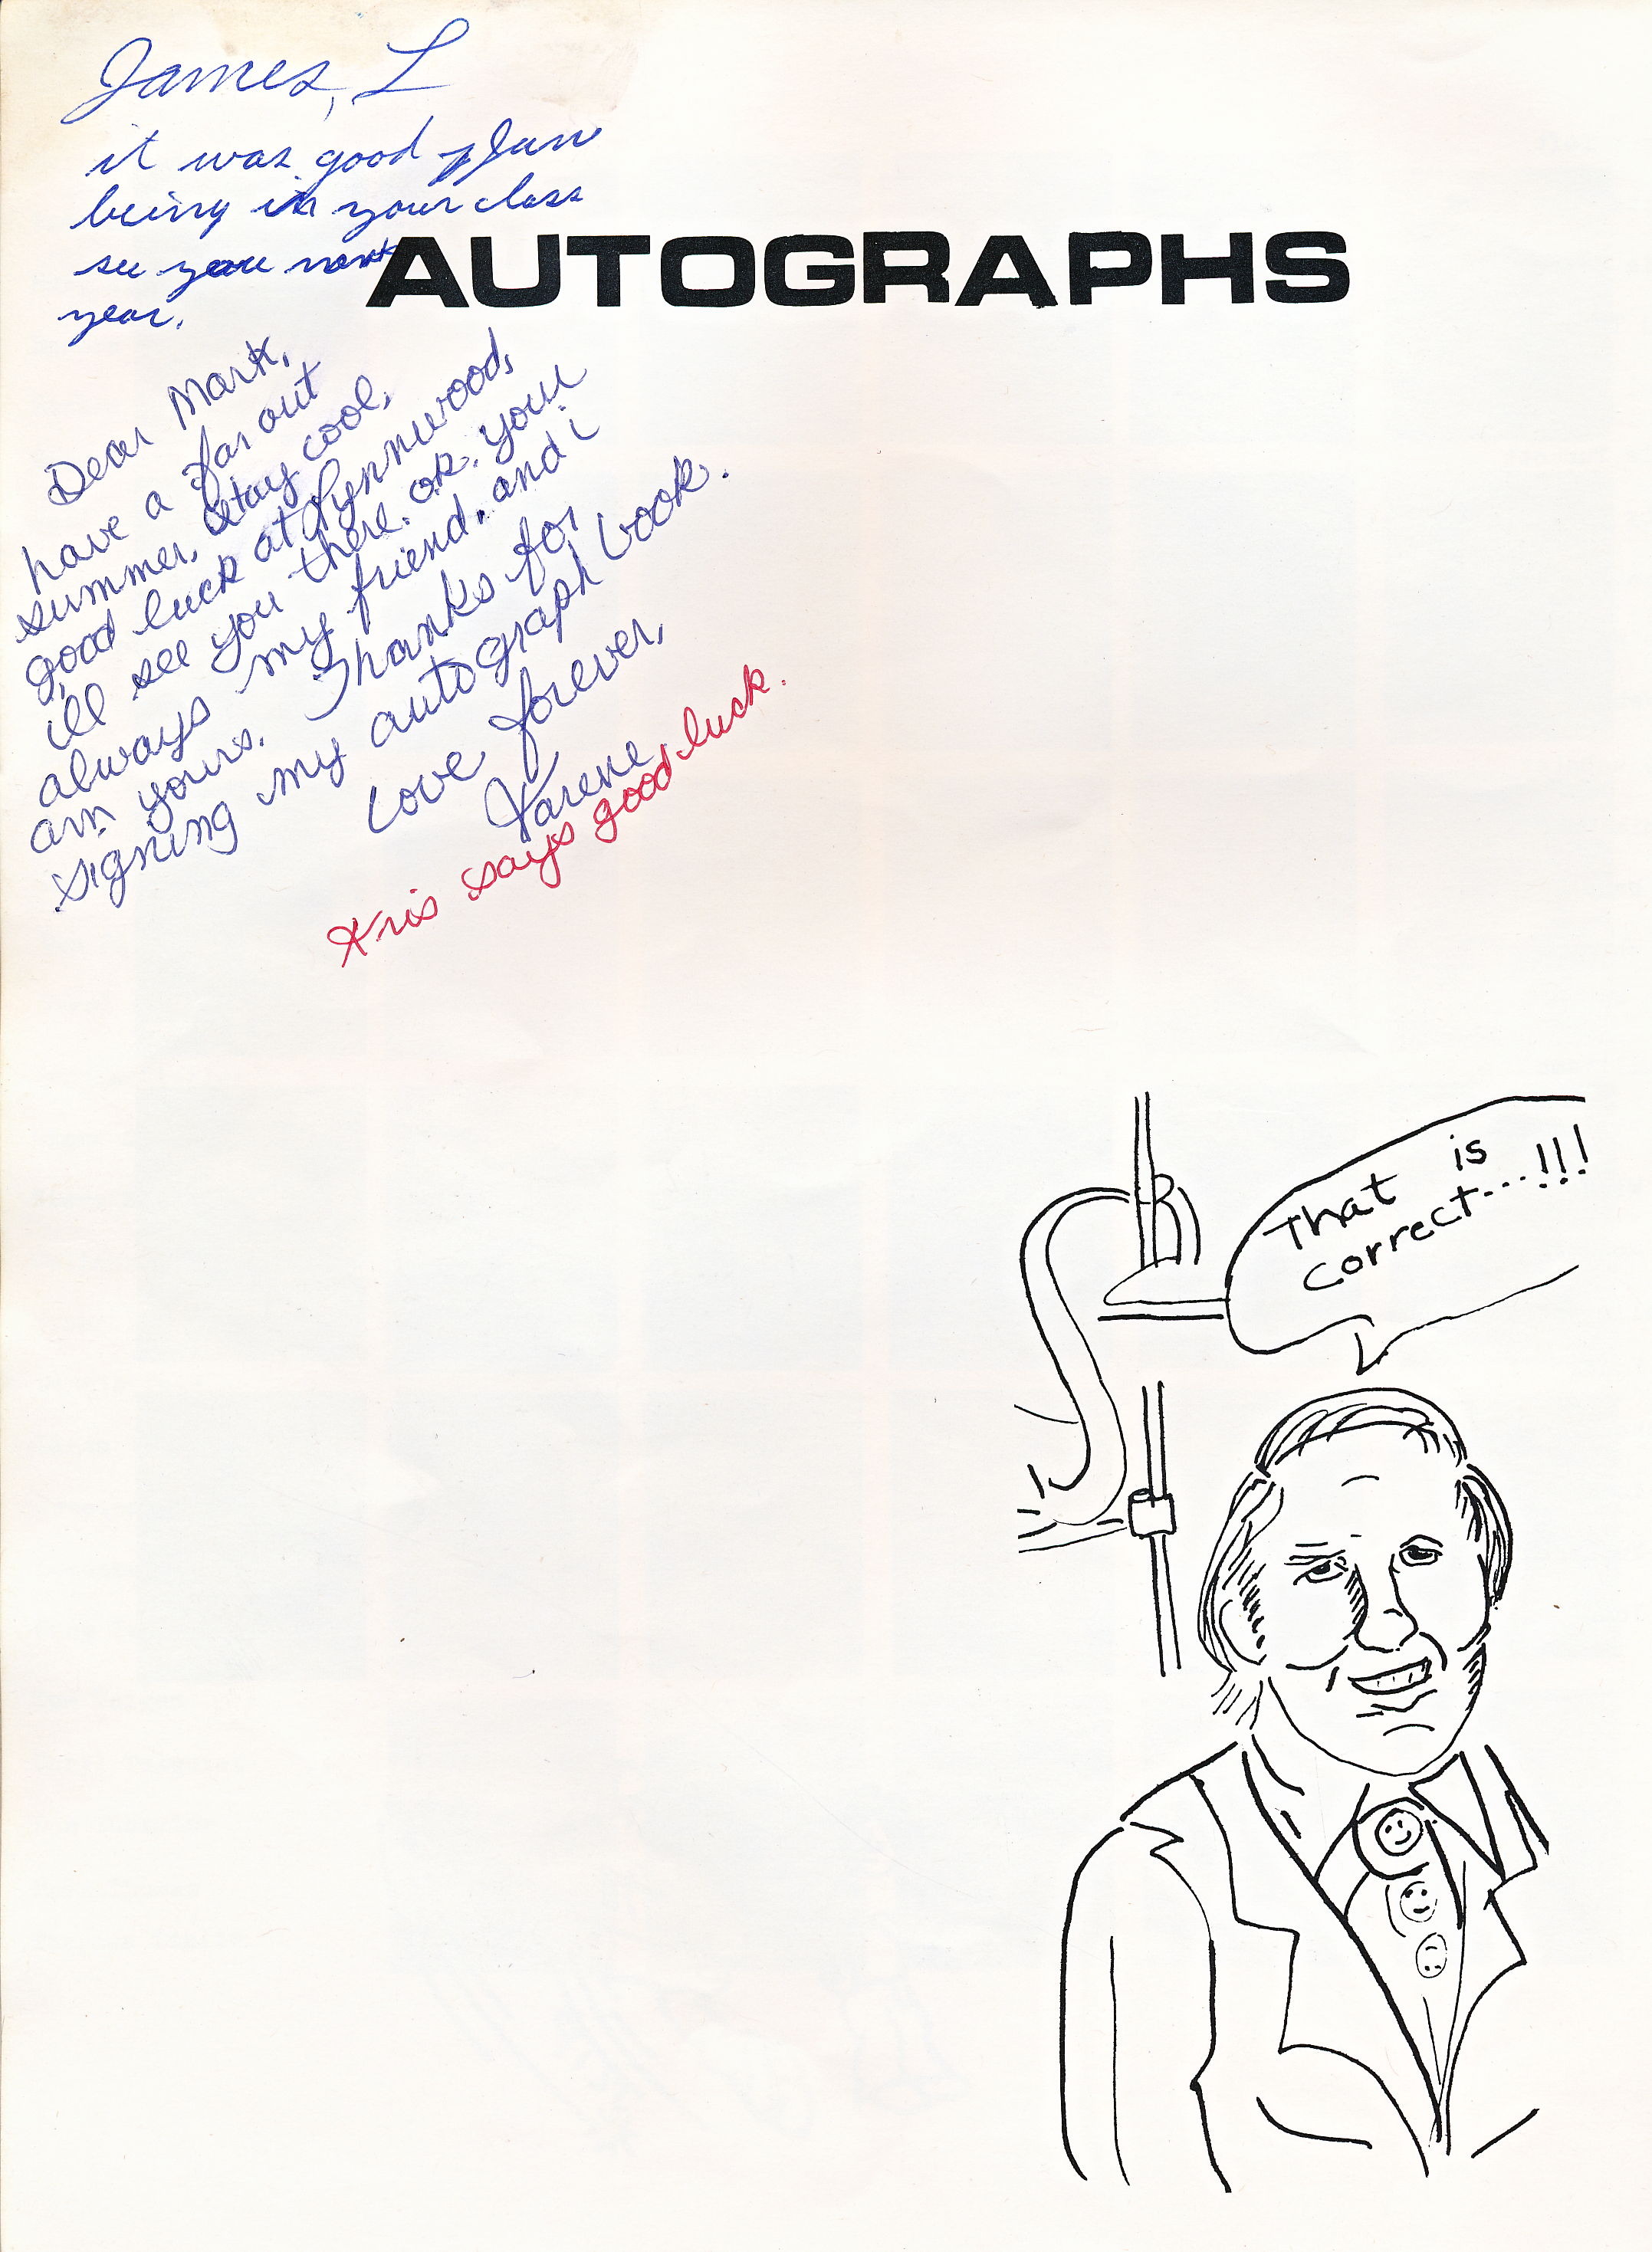 James, L
it was good
being in your class
see you next
year.
AUTOGRAPHS
Dear Mark,
have a far out
summer, stay cool,
good luck at Lynnwood,
ill see you there. ok. your
always my friend. and i
am yours. Thanks for
signing my autograph book.
Love forever,
Karene
Kris says good luck.
That is
correct...!!!